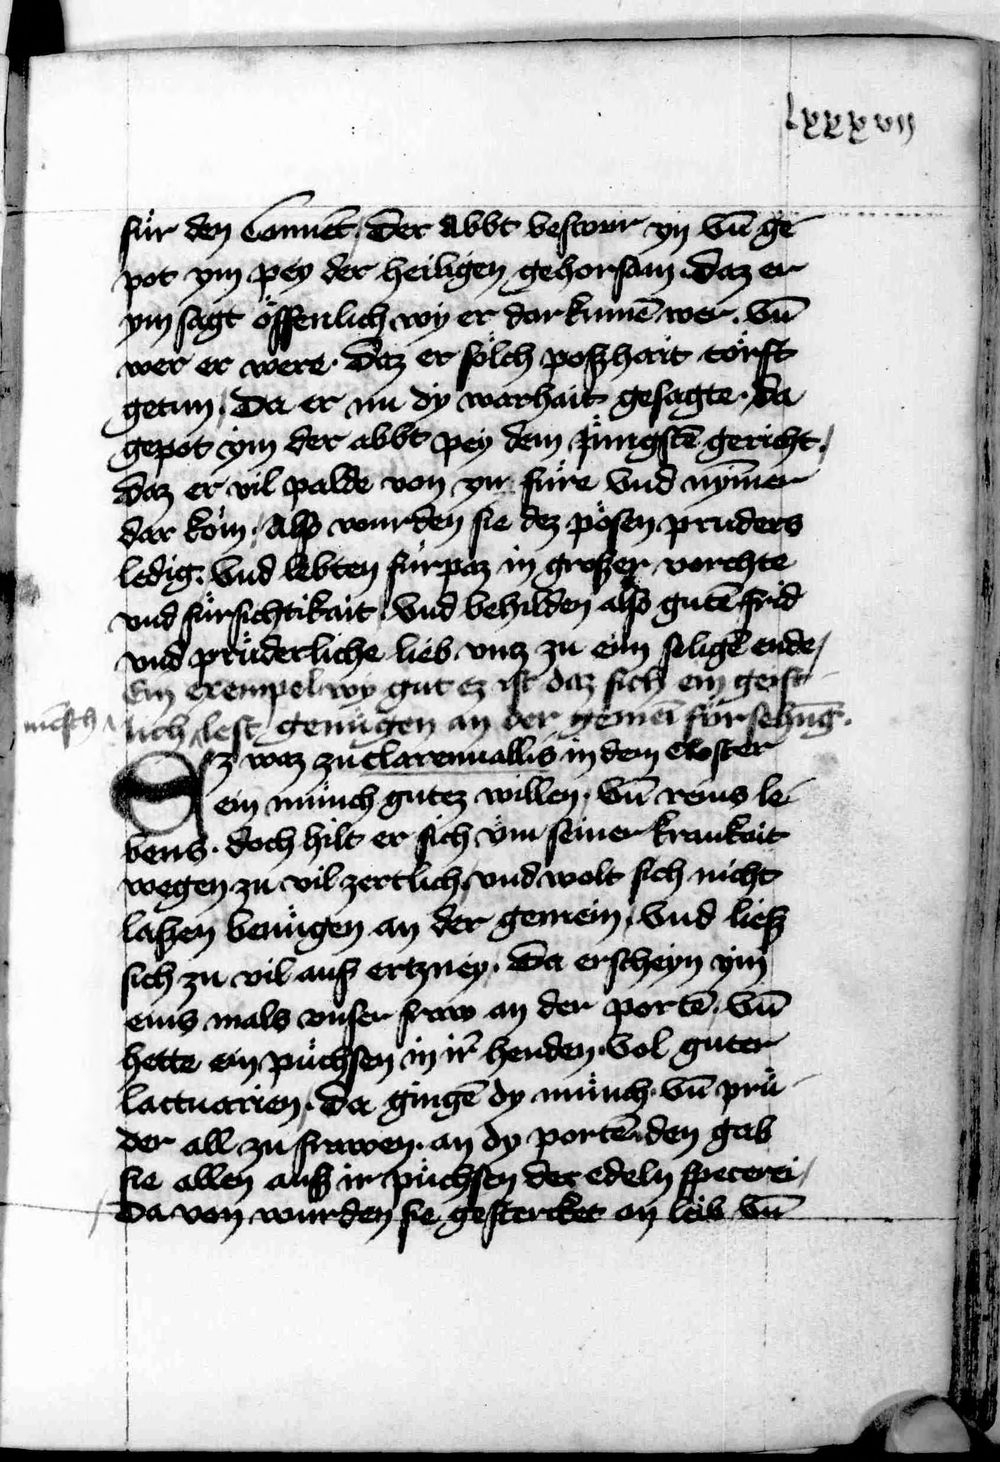 lxxxvii
für den Conuēt / Der Abbt beswur yn Vn̄ ge
pot ym pey der heiligen gehorsam. Daz er
ym sagt öffenlich wy er dar kumē wer. Vn̄
wer er were. Daz er sölch poßhait törst
getun / Da er nu dy warhait gesagte. Da
gepot ym der abbt pey dem Jüngstē gericht /
Daz er vil palde von yn füre Vnd nym̄er
dar köm / Also wurden sie dez pösen pruders
ledig. Vnd lebten fürpaz in großer vorchte
vnd fürsichtikait / Vnd behilden also gutē frid
vnd prüderliche lieb vntz zu eim seligē ende /
Ein exempel wy gut ez ist daz sich ein geist
mēsch
lich lest genügen an der gemein fürsehūg.
Ez waz zu Clareuuallis in dem closter
ein münch gutez willen. Vn̄ reins le
bens. doch hilt er sich vm seiner krankait
wegen zu vil zertlich / vnd wolt sich nicht
laßen benügen an der gemein / Vnd ließ
sich zu vil auf ertzney. Da erscheyn ym
eins mals vnser fraw an der portē. Vn̄
hette ein püchsen in ir henden Vol guter
lactuarien. Da gingē dy münch. Vn̄ prü
der all zu frawen. an dy portē. den gab
sie allen auß ir püchsen der edeln specerei /
Da von wurden sie gestercket an leib Vn̄